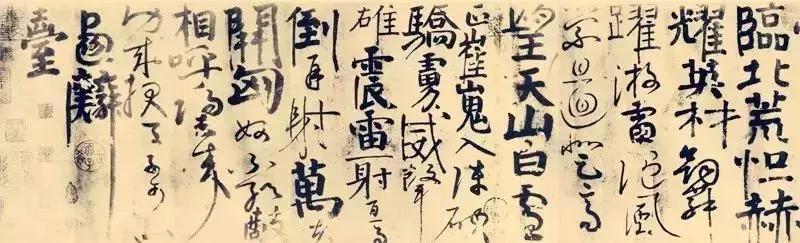 臨北荒恒赫
耀英材劒舞
躍游電随風
縈且迴登高
望天山白雪
正崔嵬入陣破
驕虜威聲
雄震雷一射百馬
倒再射萬夫
開匈奴不敢敵
相呼歸去來
功成報天子可
以畫麟
臺